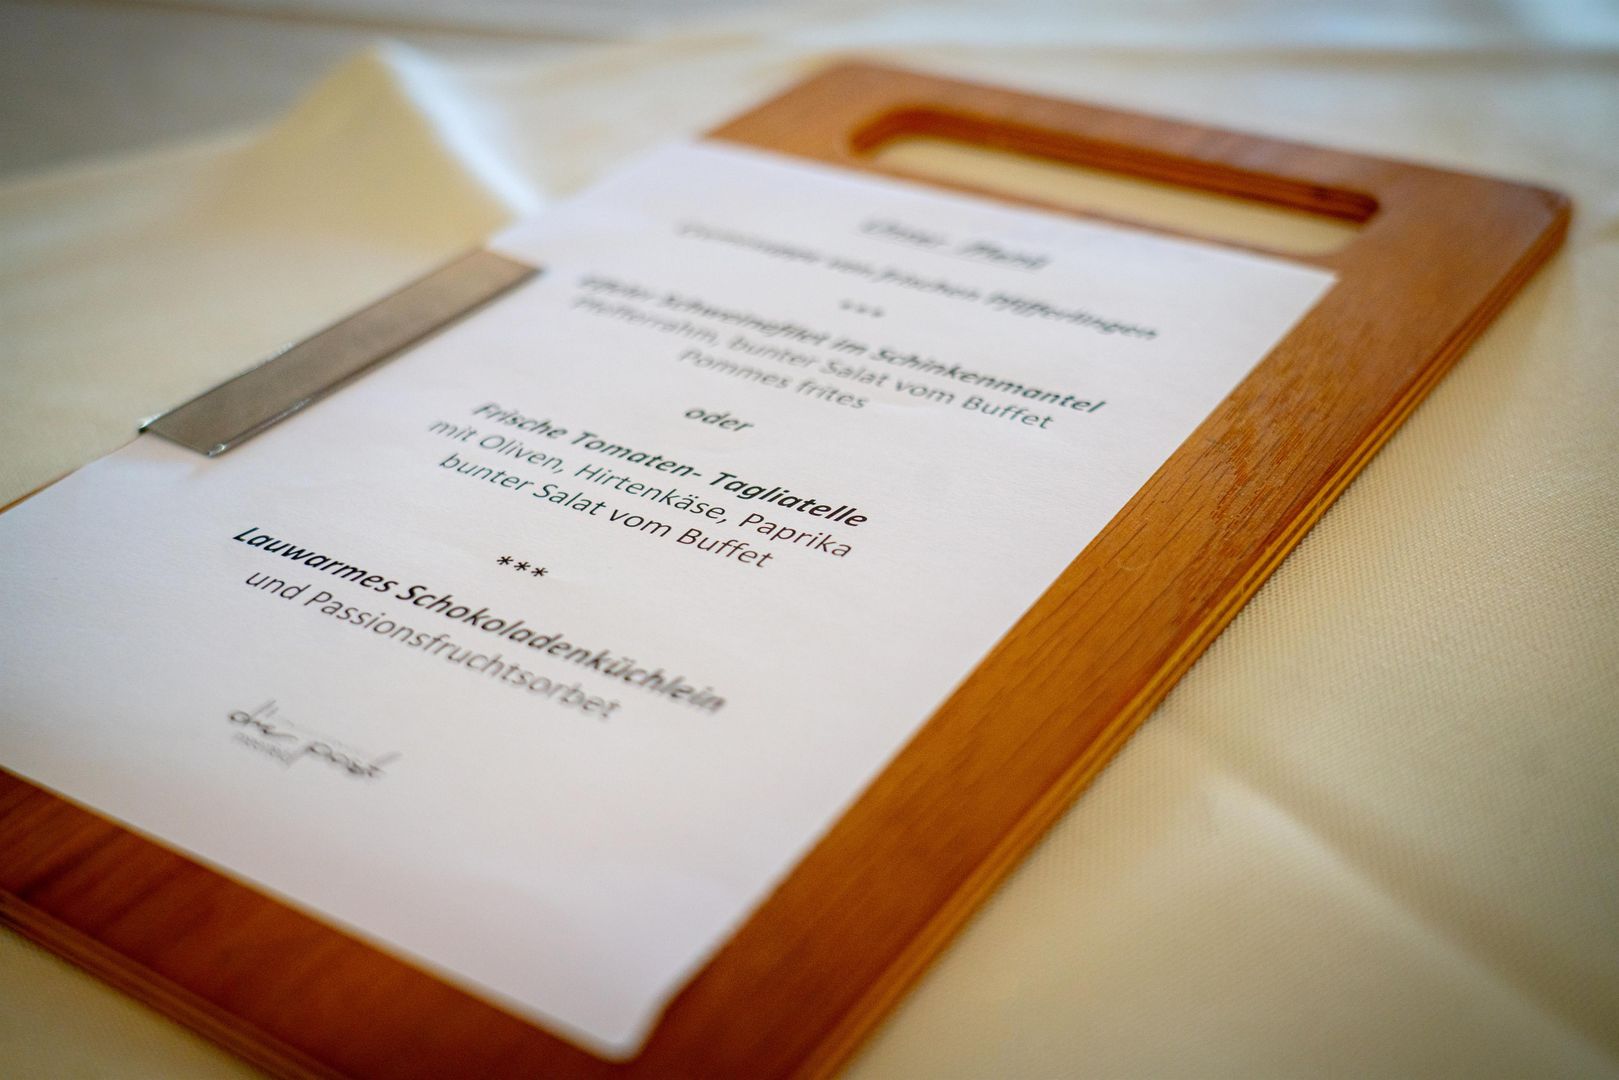 von frischen Pfifferlingen
***
Eifeler Schweinefilet im Schinkenmantel
Pfefferrahm, bunter Salat vom Buffet
Pommes frites
oder
Frische Tomaten- Tagliatelle
mit Oliven, Hirtenkäse, Paprika
bunter Salat vom Buffet
***
Lauwarmes Schokoladenküchlein
und Passionsfruchtsorbet
die post